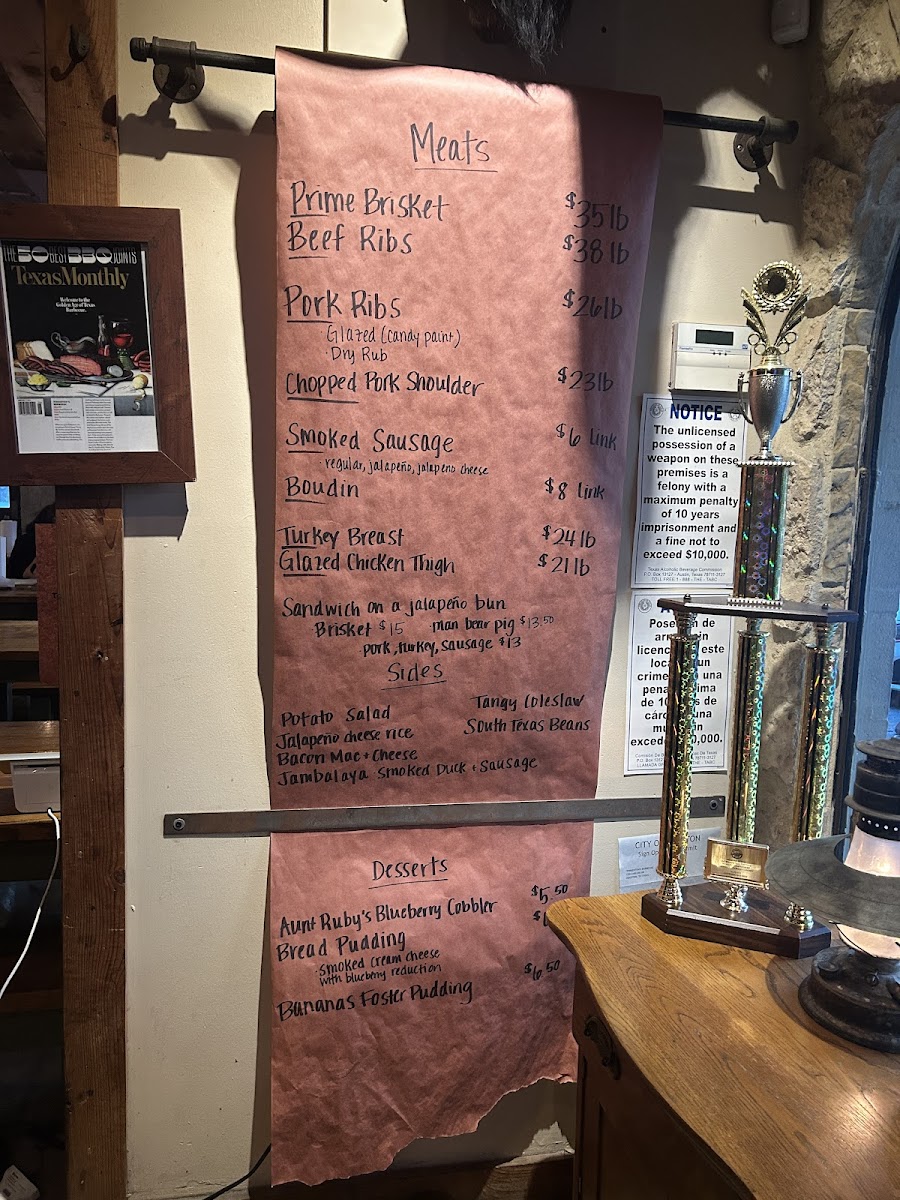 THE 50 BEST BBQ JOINTS
TexasMonthly
Welcome to the
Golden Age of Texas
Barbecue.
Meats
Prime Brisket $35 lb
Beef Ribs $38 lb
Pork Ribs $26 lb
Glazed (candy paint)
· Dry Rub
Chopped Pork Shoulder $23 lb
Smoked Sausage $6 Link
· regular, jalapeño, jalapeno cheese
Boudin $8 Link
Turkey Breast $24 lb
Glazed Chicken Thigh $21 lb
Sandwich on a jalapeño bun
Brisket $15 · man bear pig $13.50
· pork, turkey, sausage $13
Sides
Potato Salad Tangy Coleslaw
Jalapeño cheese rice South Texas Beans
Bacon Mac + Cheese
Jambalaya Smoked Duck + Sausage
Desserts
Aunt Ruby's Blueberry Cobbler $5.50
Bread Pudding
· Smoked cream cheese
with blueberry reduction
Bananas Foster Pudding $6.50
NOTICE
The unlicensed
possession of a
weapon on these
premises is a
felony with a
maximum penalty
of 10 years
imprisonment and
a fine not to
exceed $10,000.
Texas Alcoholic Beverage Commission
P.O. Box 13127 - Austin, Texas 78711-3127
TOLL FREE 1 - 888 - THE - TABC
de
in
este
un
una
de 10 de
una
CITY O